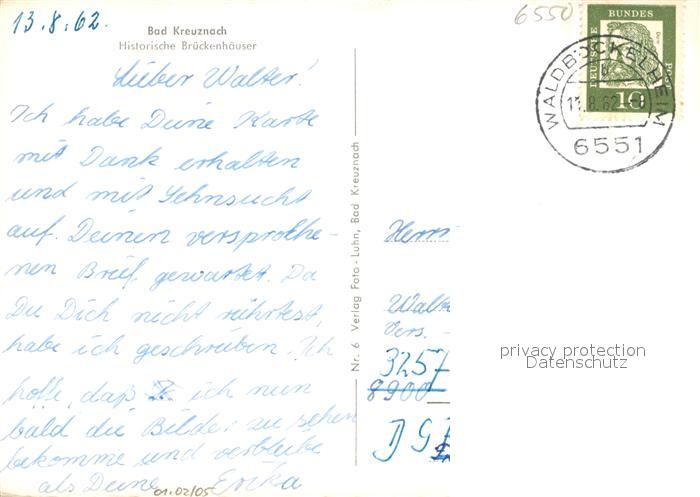 13.8.62.
Bad Kreuznach
Historische Brückenhäuser
6550
DEUTSCHE BUNDES POST
10
WALDBÖCKELHEIM
b
11.8.62.-8
6551
Lieber Walter!
Ich habe Deine Karte
mit Dank erhalten
und mit Sehnsucht
auf Deinen versproche-
nen Brief gewartet. Da
Du Dich nicht rührtest,
habe ich geschrieben. Ich
hoffe, daß ich nun
bald die Bilder zu sehen
bekomme und verbleibe
als Deine Erika
01.02/05
Nr. 6 Verlag Foto-Luhn, Bad Kreuznach
Herrn
Walt
Vers.
3257
8900
DG
privacy protection
Datenschutz